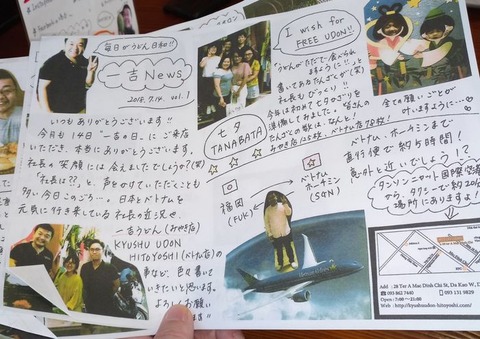 毎日がうどん日和!!
一吉News
2018.7.14. vol.1
いつもありがとうございます!!
今月も14日"一吉の日"にご来店
いただき、本当にありがとうございます。
社長の笑顔には会えましたでしょうか?(笑)
「社長は??」と、声をかけていただくことも
多い今日このごろ…。日本とベトナムを
元気に行き来している社長の近況や、
一吉うどん(みやき店)
KYUSHU UDON
HITOYOSHI(ベトナム店)の
事など、色々書いて
いきたいと思います。
よろしくお願い
します!!
I wish for
FREE UDON!!
「うどんがただで食べられ
ますように!!」と
書いてあるたんざくが(笑)
社長もびっくり!!
七夕
TANABATA
今年も初めて七夕かざりを
準備してみました。皆さんの
たんざくの数は、なんと!
全ての願いごとが
叶いますように…
福岡
(FUK)
ベトナム
ホーチミン
(SGN)
ベトナム、ホーチミンまで
直行便で約5時間!
意外と近いでしょう!?
タンソンニャット国際空港
から、タクシーで約20分
場所にありますよ!
Add : 28 Ter A Mac Dinh Chi St, Da Kao W, D
093 862 7440
093 131 9829
Open : 7:00〜21:00
Web : http://kyushuudon-hitoyoshi.com/